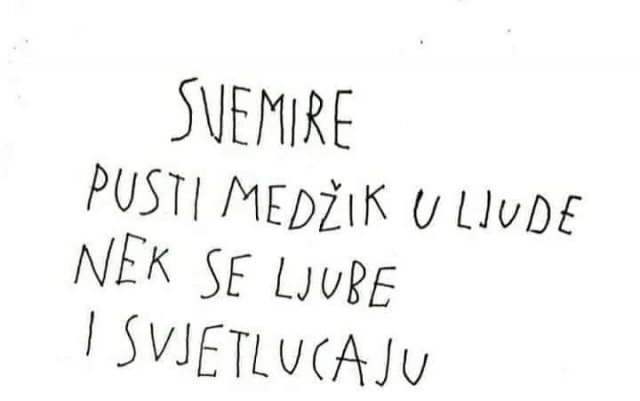 SVEMIRE
PUSTI MEDŽIK U LJUDE
NEK SE LJUBE
I SVJETLUCAJU